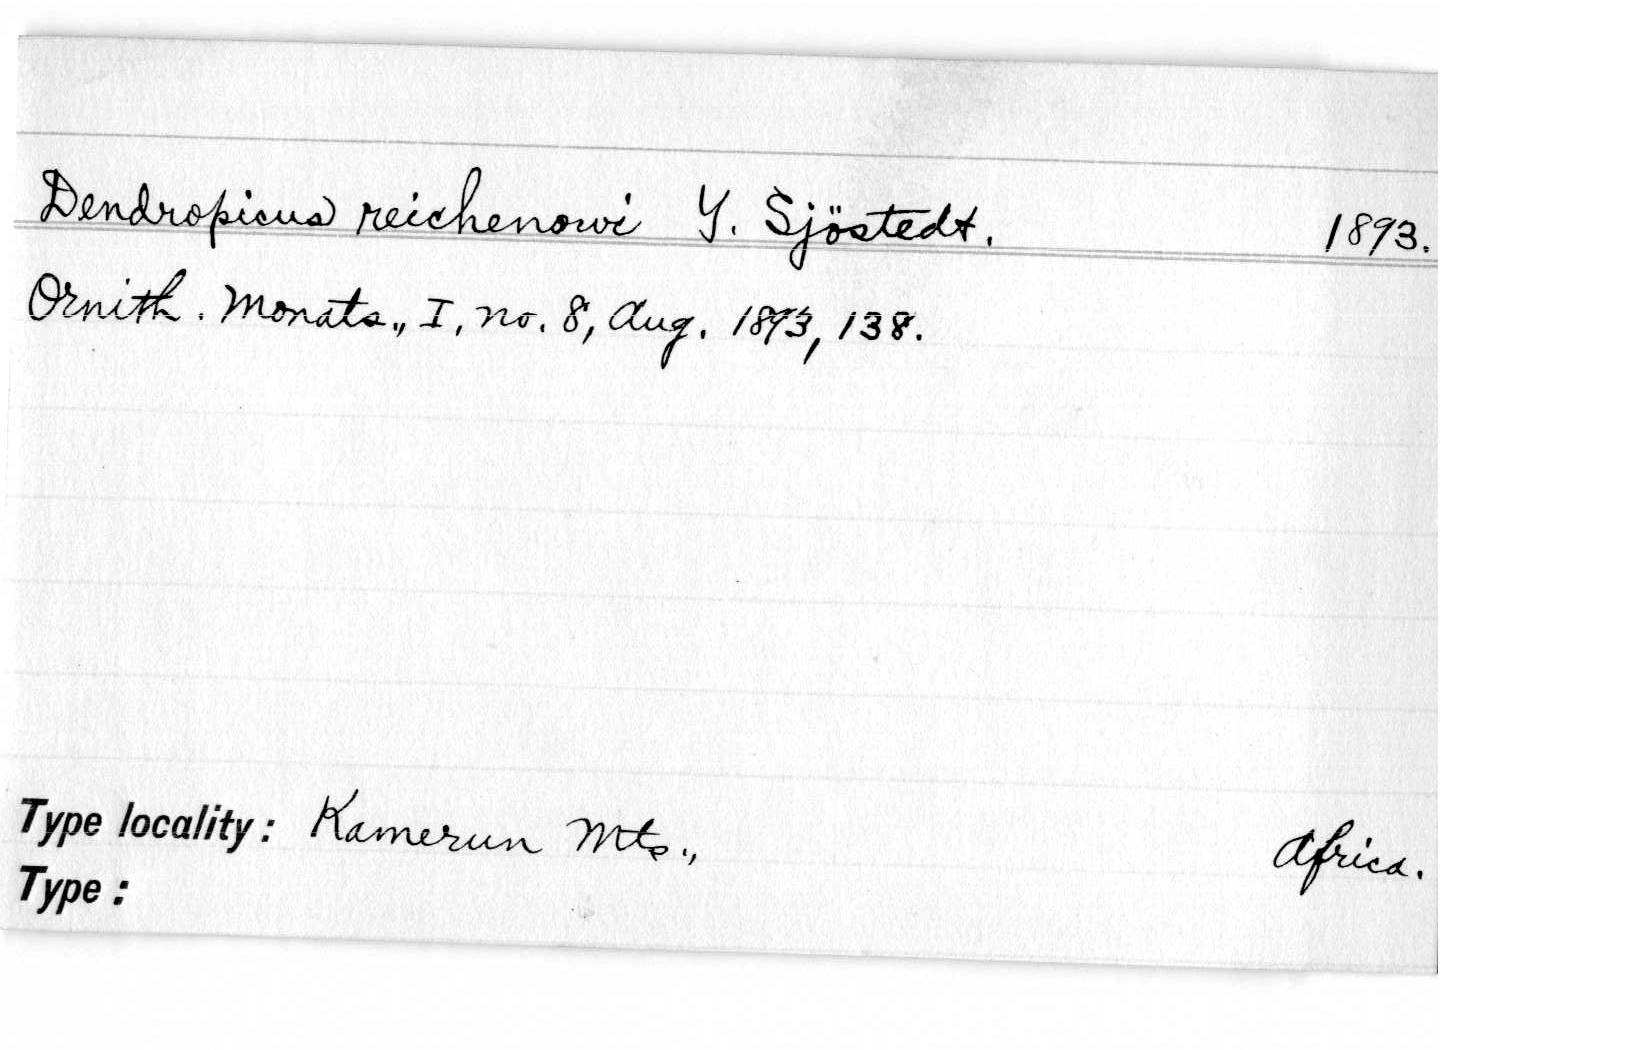 Dendropicus reichenowi Y. Sjöstedt. 1893.
Ornith. Monats., I, no. 8, Aug. 1893, 138.
Type locality: Kamerun Mts., Africa.
Type: